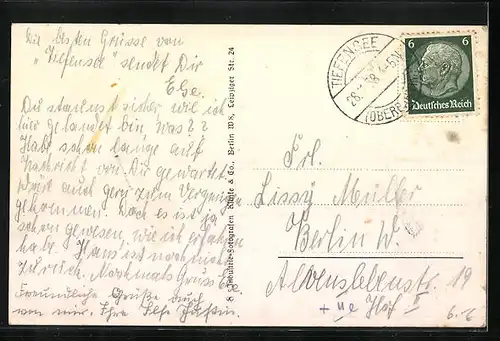 Die besten Grüsse von
"Tiefensee" sendet Dir
Else.
Du staunst sicher wie ich
hier gelandet bin, was??
Habe schon lange auf
Nachricht von Dir gewartet
wäre auch gern zum Vergnügen
gekommen. Doch es ist ja
schon gewesen, wie ich erfahren
habe. Hans ist noch nicht
zurück. Nochmals Gruss Else.
Freundliche Grüße auch
von mir. Ihre Else
8 Industrie-Fotografen Klinke & Co., Berlin W 8, Leipziger Str. 24
TIEFENSEE
28.
(OBERB
6 6
Deutsches Reich
Frl.
Lissy Müller
Berlin W.
Alvenslebenstr. 19
Hof II